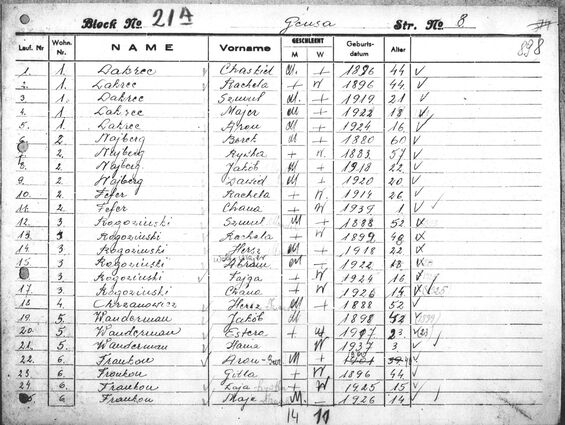 Block No 21A Gęnsa Str. No 8
898
Lauf. Nr Wohn. Nr. NAME Vorname GESCHLECHT M W Geburts-datum Alter
1. 1. Lakrec Chaskiel M. + 1896 44 ✓
2. 1. Lakrec Rachela + W 1896 44 ✓
3. 1. Lakrec Szmul M + 1919 21 ✓
4. 1. Lakrec Majer M + 1922 18 ✓
5. 1. Lakrec Aron M + 1924 16 ✓
6. 2. Najberg Berek M + 1880 60 ✓
7. 2. Najberg Ryfka + W 1883 57 ✓
8. 2. Najberg Jakób M + 1918 22 ✓
9. 2. Najberg Dawid M + 1920 20 ✓
10. 2. Fefer Rachela + W 1914 26 ✓
11. 2. Fefer Chana + W 1939 1 ✓
12. 3 Rogoziński Szmul M + 1888 52 x
13. 3 Rogoziński Rachela + W 1899 x
14. 3 Rogoziński Hersz M + 1918 22 x
15. 3 Rogoziński Abram M + 1922 18 x
3 Rogoziński Fajga + W 1924 16 x
17. 3 Rogoziński Chana + W 1926 14 x
18. 4 Chrzanowicz Hersz M + 1888 52 ✓
19. 5. Wanderman Jakób M 1898 42 ✓
20. 5. Wanderman Estera + W 1917 23 ✓
21. 5. Wanderman Hana W 1937 3 ✓
22. 6. Frankou Aron- M + 1901 39
23. 6. Frankou Gitla + W 1896 44 ✓
24. 6. Frankou Laja + W 1925 15 ✓
25. 6 Frankou Maje M. - 1926 14 ✓
14 11